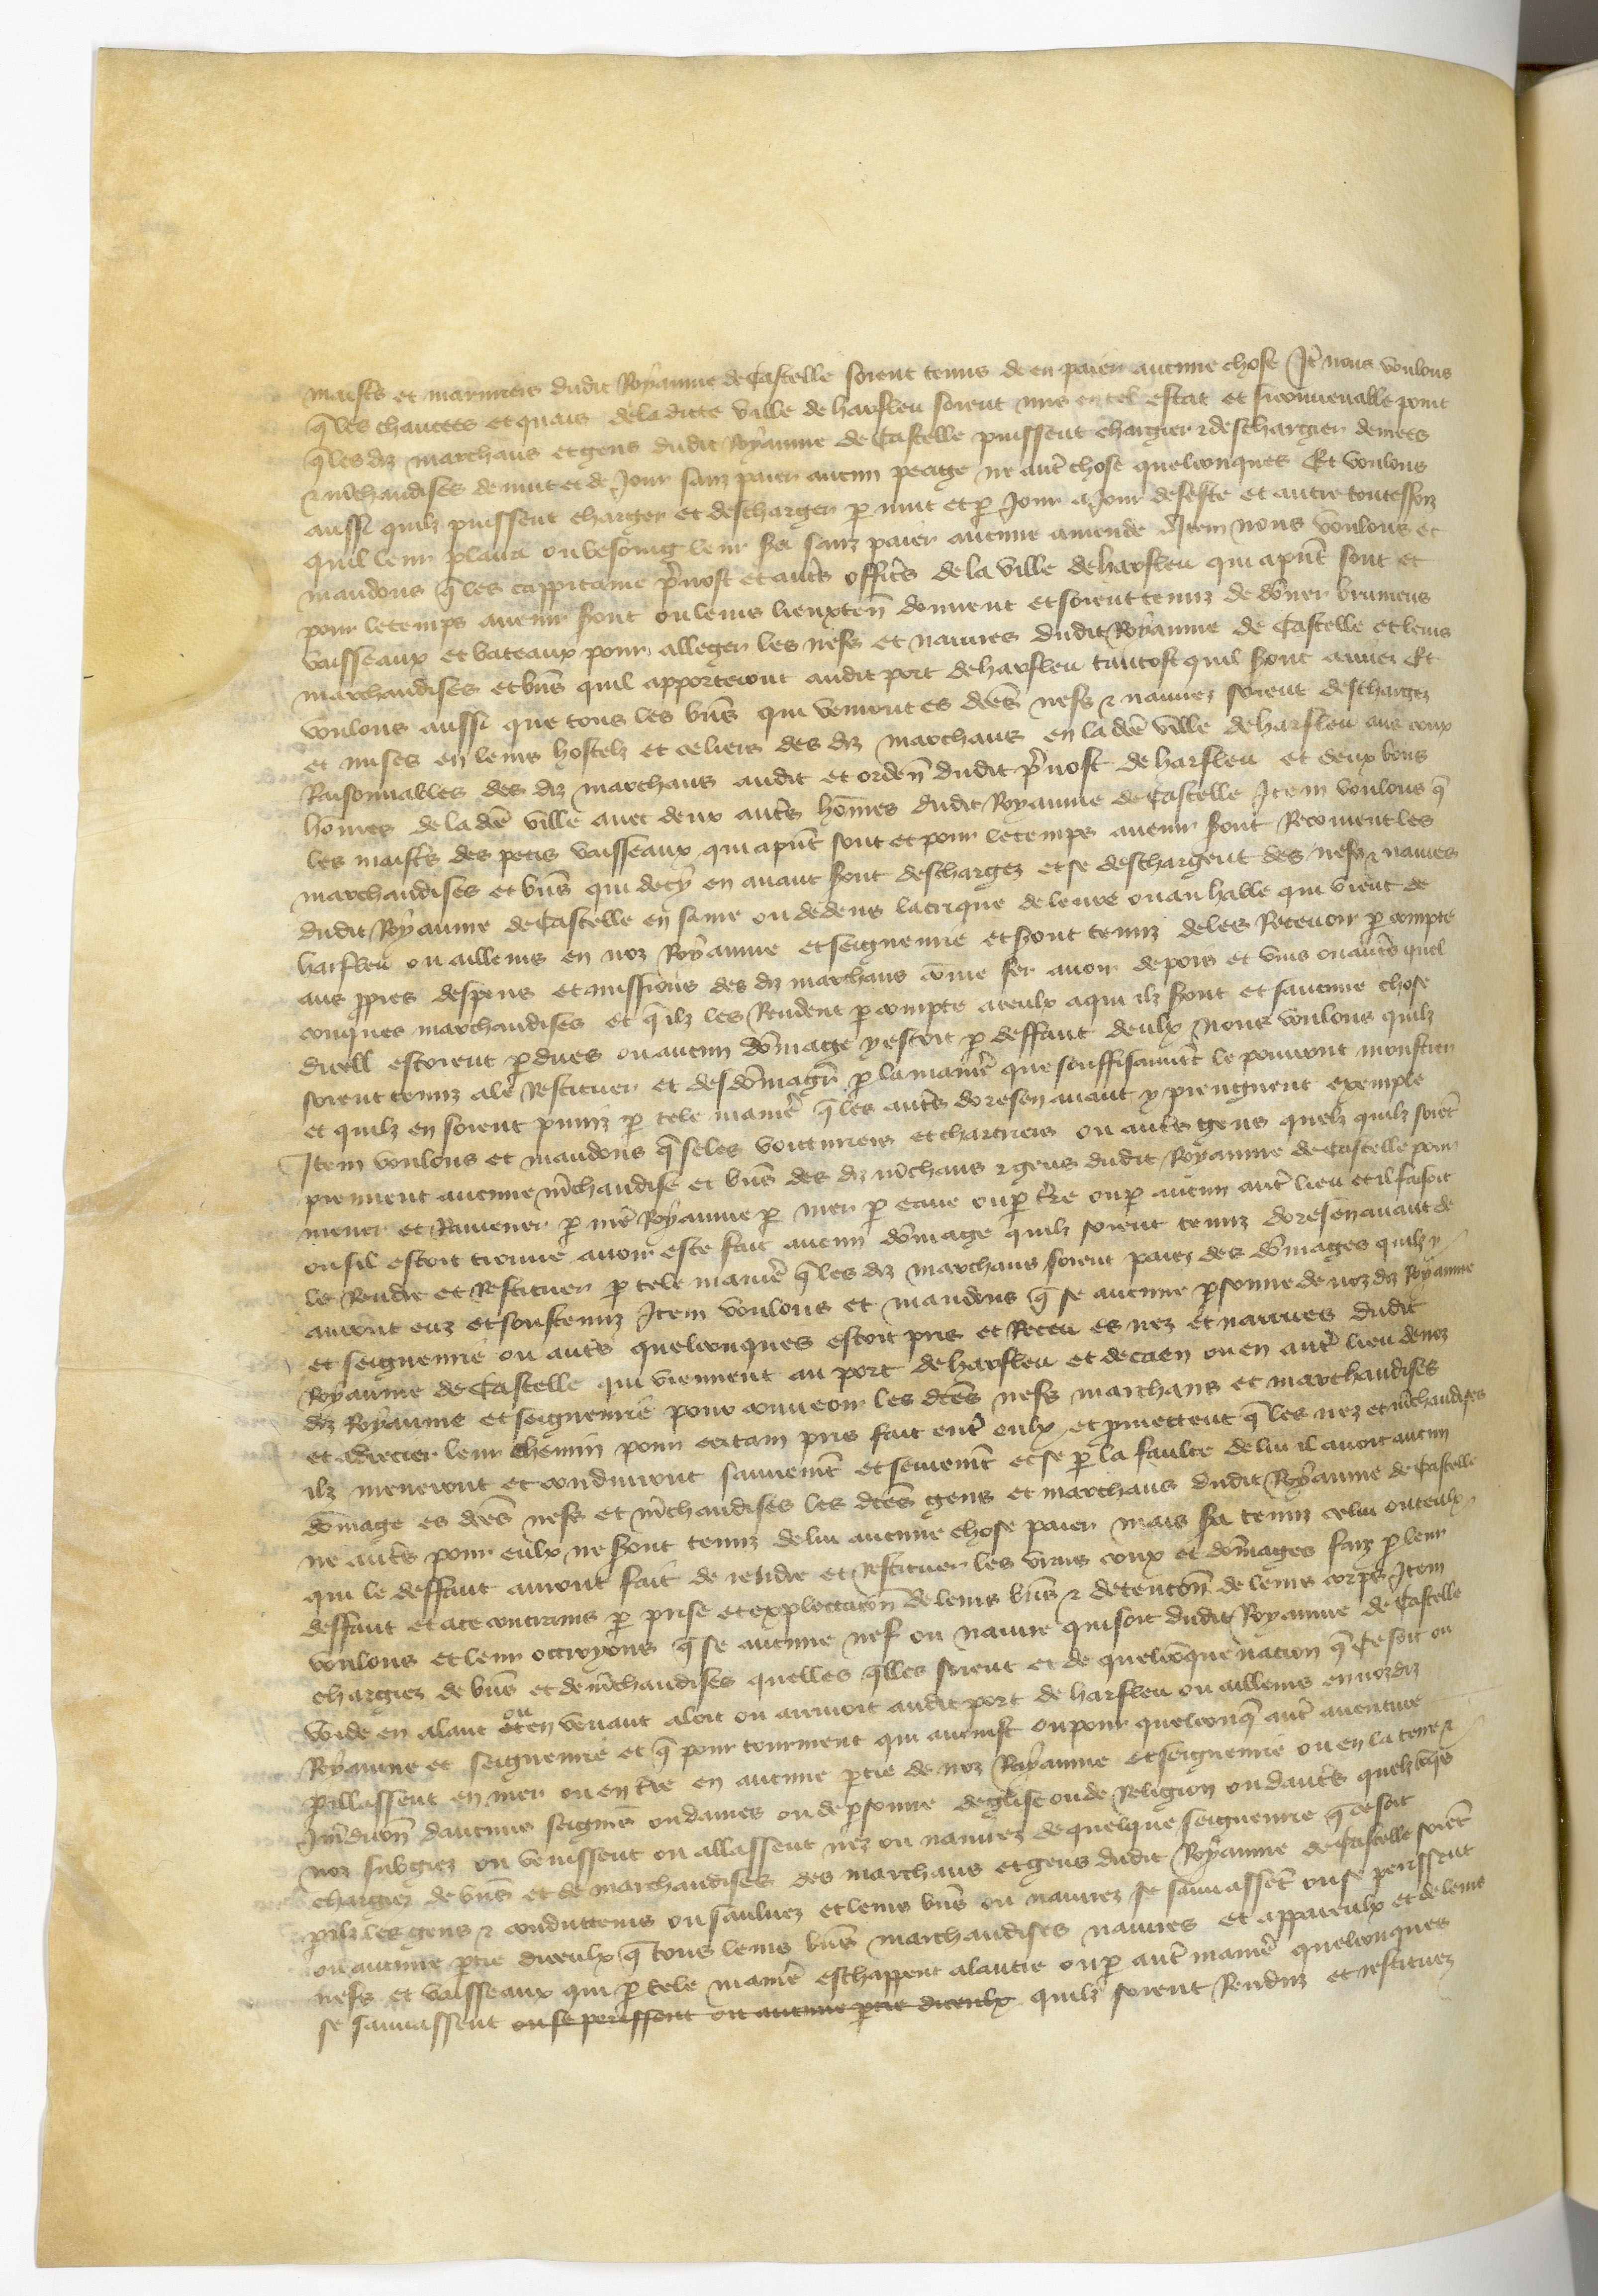 maistˢ et marinieis dudit Royaume de Castelle soient tenus de en paier aucune chose It̃ nous voulons
q̃ les chaucees et quais de la ditte ville de harfleu soient mis en tel estat et si conuenable point
q̃ les diz marchans et gens dudit Royaume de Castelle puissent chargier ⁊ deschargier denrees
⁊ m̃chandises de nuit et de Jour sanz paier aucun peage ne aut̃ chose quelconques Et voulons
aussi quilz puissent charger et descharger ꝑ nuit et ꝑ Jour a Jour de feste et autre touteffoiz
quil leur plaira ou besoing leur s̃a sanz paier aucune amende Item nous voulons et
mandons q̃ les cappitaine p̃uost et aut̃s offic̃s de la ville de harfleu qui a p̃nt sont et
pour le temps auenir s̃ont ou leurs lieuxteñ donnent et soient tenuz de dõner brumens
vaisseaux et bateaux pour alleger les nefs et nauires dudit Royaume de Castelle et leurs
marchandises et biẽs quil apporteront audit port de harfleu tantost quil s̃ont arriuez Et
voulons aussi que tous les biẽs qui venront es dc̃es nefs ⁊ nauirez soient deschargez
et mises en leurs hostelz et celiers des diz marchans en la dc̃e ville de harfleu aus coux
Raisonnables des diz marchans audit et ordeñ dudit p̃uost de harfleu et deux bons
hõmes de la dc̃e ville auec deux aut̃s hõmes dudit Royaume de Castelle Item voulons q̃
les maistˢ des petis vaisseaux qui a p̃nt sont et pour le temps auenir s̃ont Recoiuent les
marchandises et biẽs qui decy en auant s̃ont deschargez et se deschargent des nefs ⁊ nauies
dudit Royaume de Castelle en saine ou dedens la crique de leure ou au hable qui vient de
harfleu ou ailleurs en noz Royaume et seigneurie et s̃ont tenuz de les Receuoir ꝑ compte
aus ꝓpres despens et missions des diz marchans cõme fer auoir de pois et vins ou aut̃s quel
conques marchandises et q̃ ilz les Rendent ꝑ compte a ceulx a qui ilz s̃ont et saucune chose
dicell estoient ꝑdues ou aucun dõmage y estoit ꝑ deffaut deulx Nous voulons quilz
soient tenuz a le restituer et desdõmagr̃ ꝑ la manie᷑ que souffisaument le pourront monstrer
et quilz en soient puniz ꝑ tele manie᷑ q̃ les aut̃s doresenauant y prengnent exemple
Item voulons et mandons q̃ se les voicturiers et chartriers ou aut̃s gens quelz quilz soiẽt
prennent aucune m̃chandise et biẽs des diz m̃chans ⁊ gens dudit Royaume de Castelle pour
mener et Ramener ꝑ nr̃e Royaume ꝑ mer ꝑ eaue ou ꝑ t̃re ou ꝑ aucun aut̃ lieu et il faisoit
ou sil estoit trouue auoir este fait aucun dõmage quilz soient tenuz doresenauant de
le Rendre et Restituer ꝑ tele manie᷑ q̃ les diz marchans soient paiez des dõmages quilz y
auront euz et soustenuz Item voulons et mandons q̃ se aucune ꝑsonne de noz diz Royaume
et seigneurie ou aut̃s quelconques estoit pris et Receu es nez et nauires dudit
Royaume de Castelle qui viennent au port de harfleu et de caen ou en aut̃ lieu de noz
diz Royaume et seigneurie pour conueoir les dc̃es nefs marchans et marchandises
et adrecier leur chemin pour certain pris fait ent̃ eulx et ꝓmettent q̃ les nez et m̃chandises
ilz menront et conduiront sauuemẽt et seuremẽt et se ꝑ la faulte de lui il auoit aucun
dõmage es dc̃es nefs et m̃chandises les dc̃es gens et marchans dudit Royaume de Castelle
ne aut̃s pour eulx ne s̃ont tenuz de lui aucune chose paier mais s̃a tenuz celui ou ceulx
qui le deffaut auront fait de rendre et restituer les vrais coux et dõmages faiz ꝑ leur
deffaut et a ce contrains ꝑ prise et explectacõn de leurs biẽs ⁊ detencõn de leurs corps Item
voulons et leur octroyons q̃ se aucune nef ou nauire qui soit dudit Royaume de Castelle
chargiez de biẽs et de m̃chandises quelles q̃lles soient et de quelcõque nation q̃ ce soit ou
vuide en alant ou en venant aloit ou arriuoit audit port de harfleu ou ailleurs en noz diz
Royaume et seigneurie et q̃ pour tourment qui auenist ou pour quelconq̃ aut̃ auenture
ꝑillassent en mer ou en t̃re en aucune ꝑtie de noz Royaume et seigneurie ou en la terre ⁊
Jur̃dicõn daucuns seigñrs ou dames ou de ꝑsonne deglise ou de Religion ou daut̃s quelzcõqs
noz subgiez ou venissent ou allassent nez ou nauirez de quelque seigneurie q̃ ce soit
chargiez de biẽs et de marchandises des marchans et gens dudit Royaume de Castelle soiẽt
ꝑilz les gens ⁊ conducteurs ou sauluez et leurs biẽs ou nauirez se sauuassent ou se perissent
ou aucune ꝑtie diceulx q̃ tous leurs biẽs marchandises nauires et appareulx et de leurs
nefs et vaisseaux qui ꝑ tele manie᷑ eschappent a lautre ou ꝑ aut̃ manie᷑ quelconques
se sauuassent ou se perissent ou aucune ꝑtie diceulx quilz soient Renduz et restituez